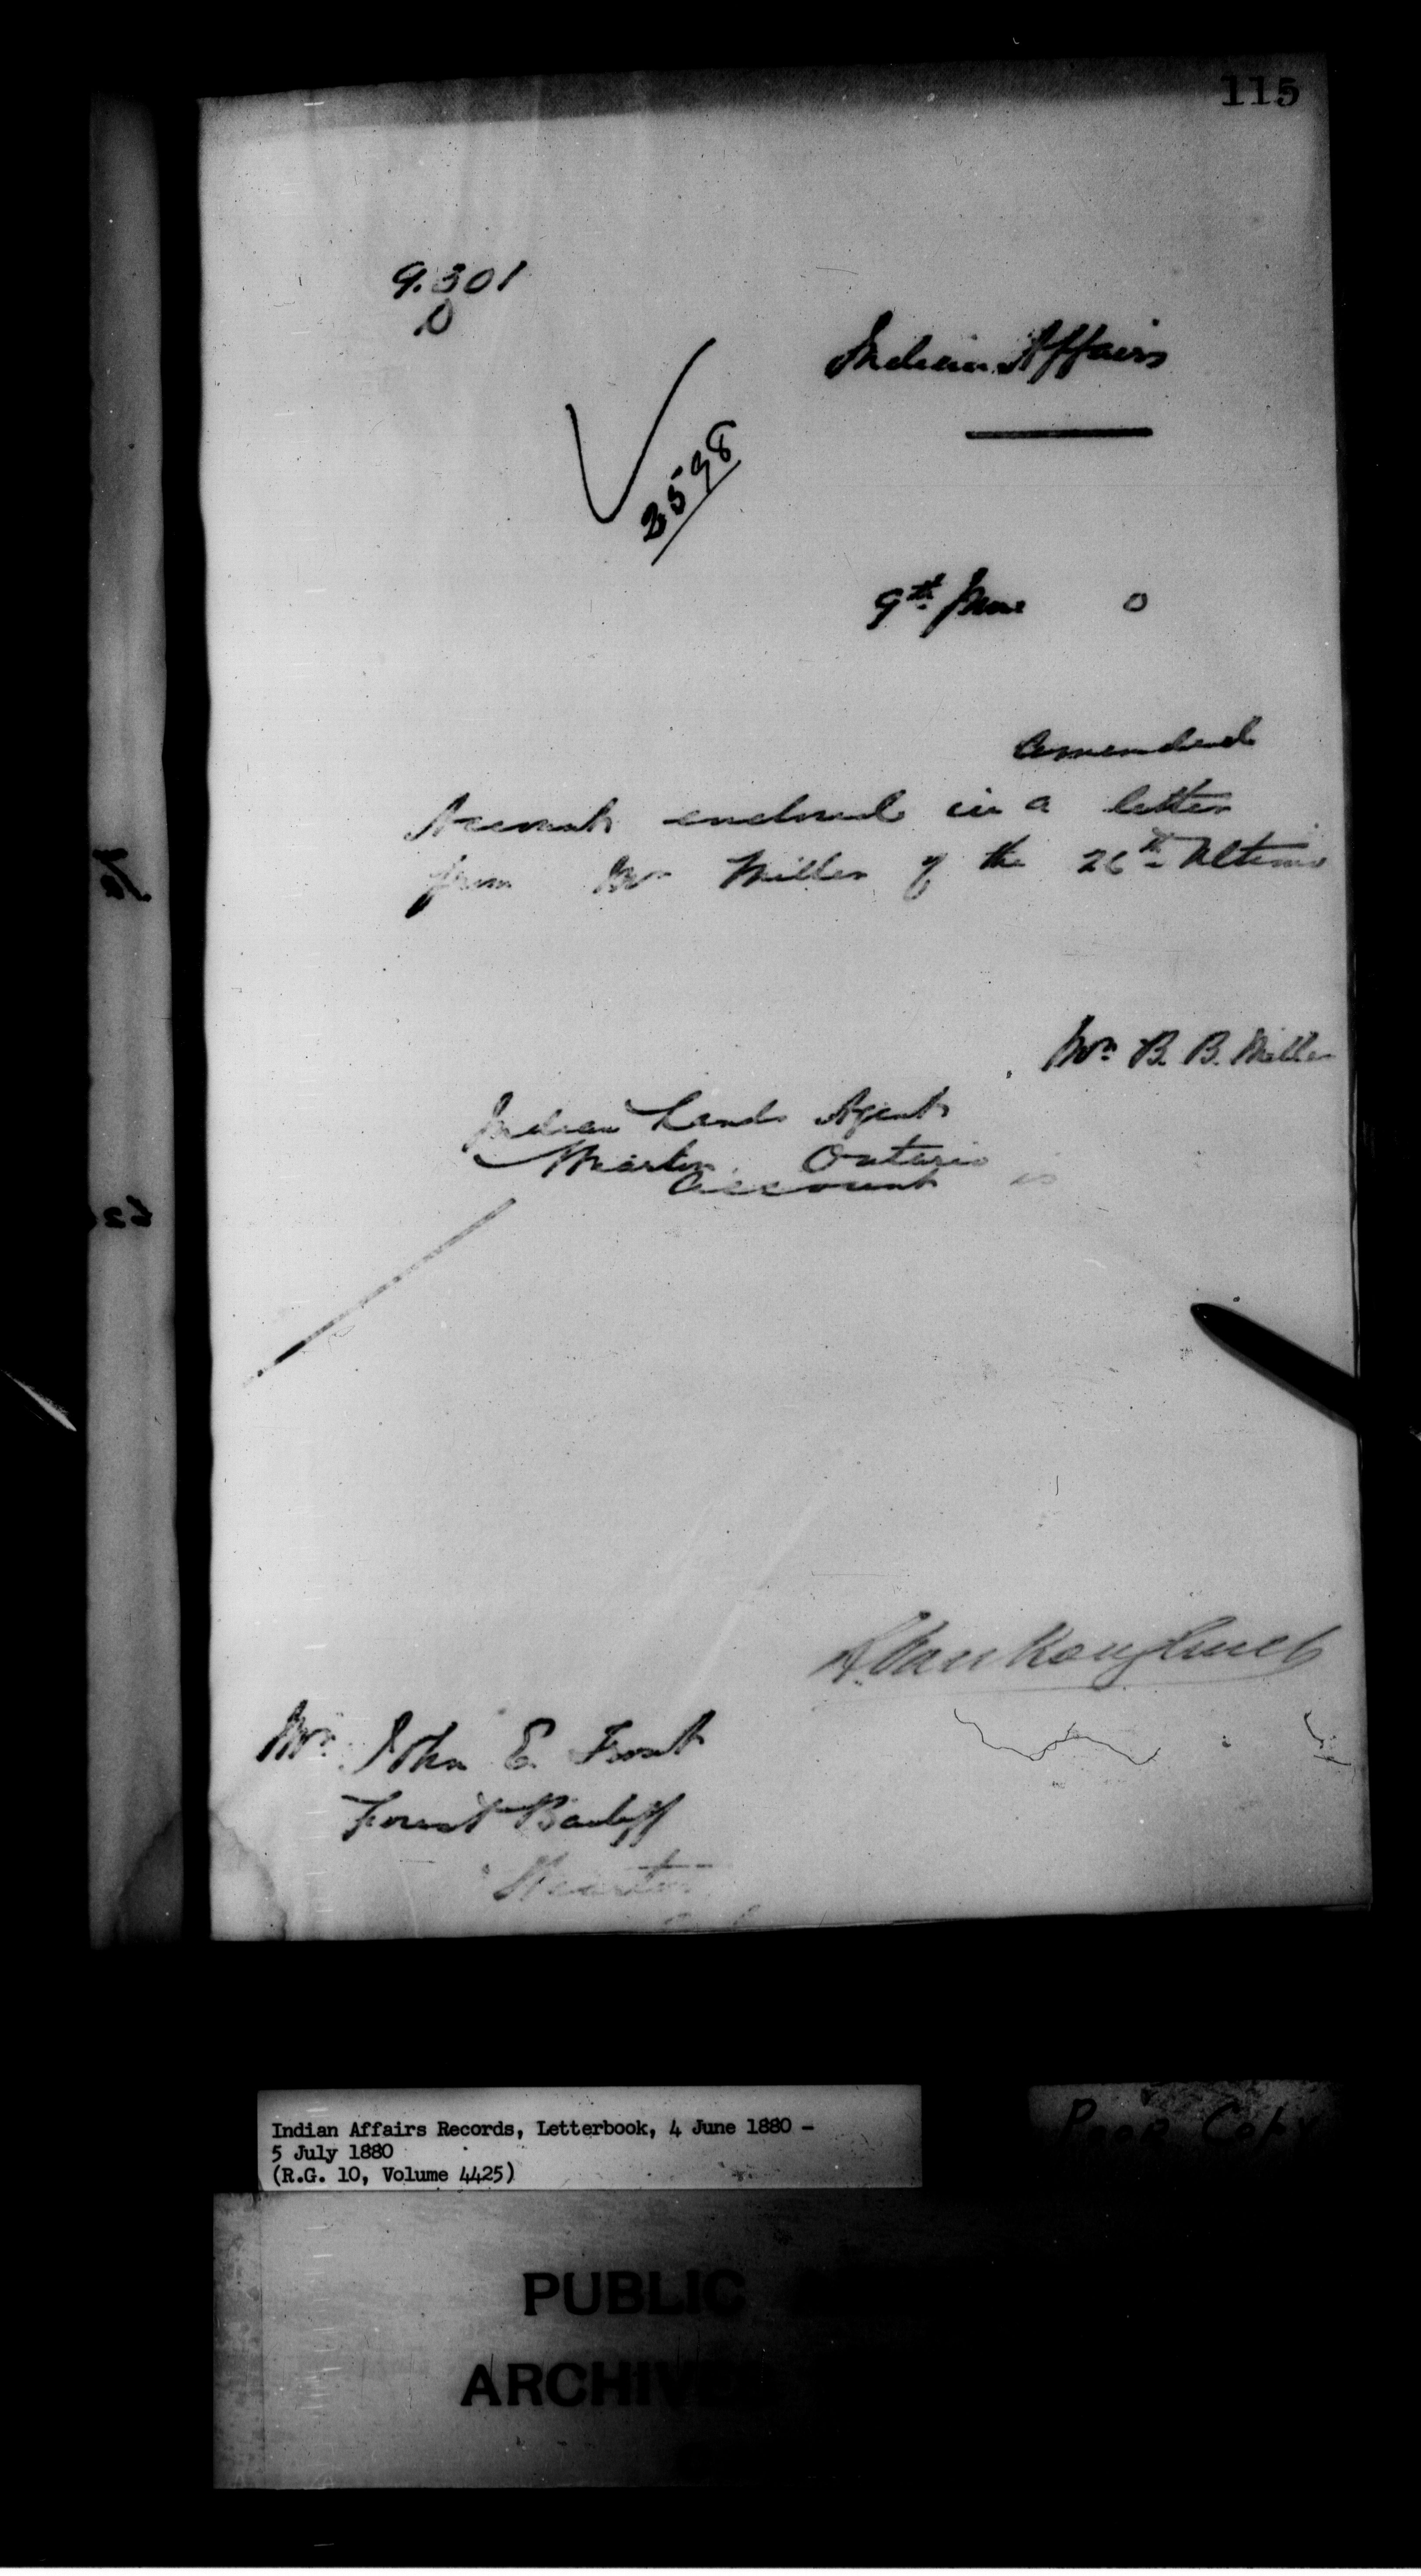 115
9.301
Indian Affairs
2598
9th June 0
amended
Account enclosed in a letter
from Mr Miller of the 26th Ultimo
Mr. B. B. Miller
Indian Lands Agent
Wiarton. Ontario
account is
L. VanKoughnet
Mr. John E. Frost
Forest Bailiff
Wiarton
Indian Affairs Records, Letterbook, 4 June 1880 -
5 July 1880
(R.G. 10, Volume 4425)
Poor Copy
PUBLIC
ARCHIVES